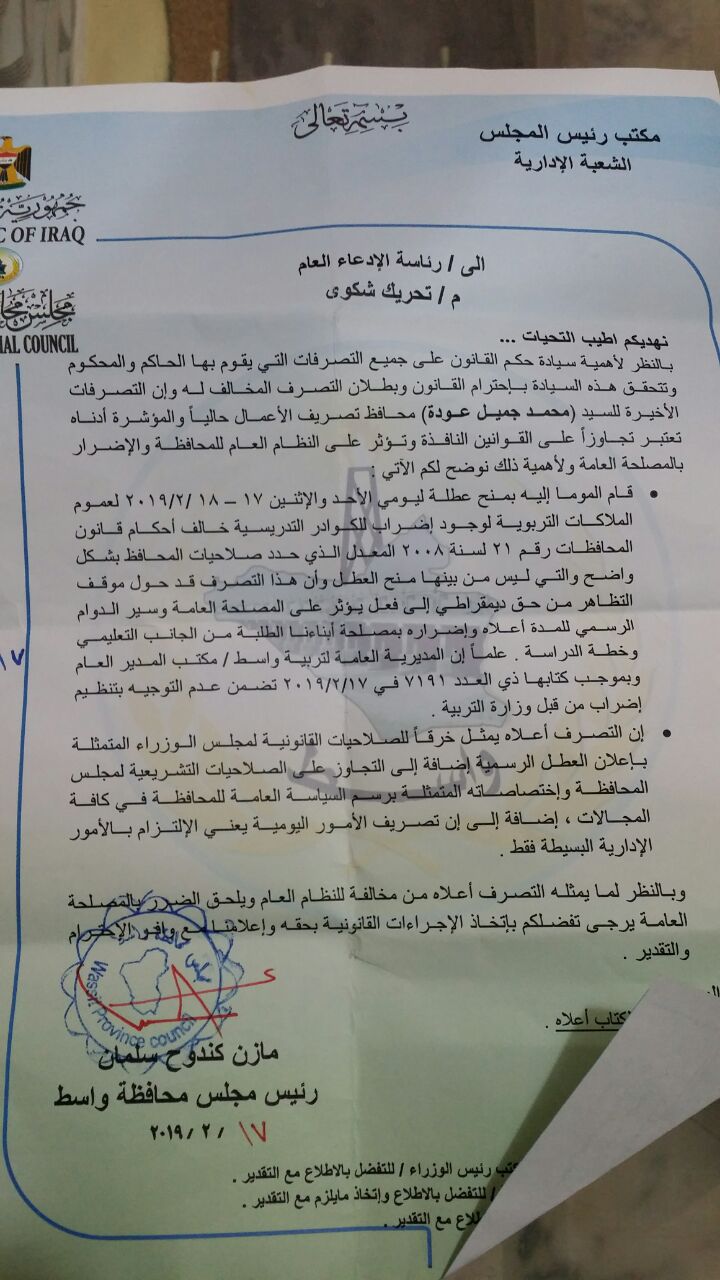 بسمه تعالى
مكتب رئيس المجلس
الشعبة الإدارية
جمهورية
C OF IRAQ
مجلس
IAL COUNCIL
الى / رئاسة الإدعاء العام
م / تحريك شكوى
نهديكم اطيب التحيات ...
بالنظر لأهمية سيادة حكم القانون على جميع التصرفات التي يقوم بها الحاكم والمحكوم
وتتحقق هذه السيادة بإحترام القانون وبطلان التصرف المخالف له وإن التصرفات
الأخيرة للسيد (محمد جميل عودة) محافظ تصريف الأعمال حالياً والمؤشرة أدناه
تعتبر تجاوزاً على القوانين النافذة وتؤثر على النظام العام للمحافظة والإضرار
بالمصلحة العامة ولأهمية ذلك نوضح لكم الآتي :
• قام الموما إليه بمنح عطلة ليومي الأحد والإثنين ١٧ – ١٨ /٢٠١٩/٢ لعموم
الملاكات التربوية لوجود إضراب للكوادر التدريسية خالف أحكام قانون
المحافظات رقم ٢١ لسنة ٢٠٠٨ المعدل الذي حدد صلاحيات المحافظ بشكل
واضح والتي ليس من بينها منح العطل وأن هذا التصرف قد حول موقف
التظاهر من حق ديمقراطي إلى فعل يؤثر على المصلحة العامة وسير الدوام
الرسمي للمدة أعلاه وإضراره بمصلحة أبناءنا الطلبة من الجانب التعليمي
وخطة الدراسة . علماً إن المديرية العامة لتربية واسط / مكتب المدير العام
وبموجب كتابها ذي العدد ٧١٩١ في ٢٠١٩/٢/١٧ تضمن عدم التوجيه بتنظيم
إضراب من قبل وزارة التربية .
• إن التصرف أعلاه يمثل خرقاً للصلاحيات القانونية لمجلس الوزراء المتمثلة
بإعلان العطل الرسمية إضافة إلى التجاوز على الصلاحيات التشريعية لمجلس
المحافظة وإختصاصاته المتمثلة برسم السياسة العامة للمحافظة في كافة
المجالات ، إضافة إلى إن تصريف الأمور اليومية يعني الإلتزام بالأمور
الإدارية البسيطة فقط .
وبالنظر لما يمثله التصرف أعلاه من مخالفة للنظام العام ويلحق الضرر بالمصلحة
العامة يرجى تفضلكم بإتخاذ الإجراءات القانونية بحقه وإعلامنا مع وافر الإحترام
والتقدير .
أعلاه .
Wassit Province council
مازن كندوح سلمان
رئيس مجلس محافظة واسط
١٧ / ٢ / ٢٠١٩
رئيس الوزراء / للتفضل بالاطلاع مع التقدير .
/ للتفضل بالاطلاع وإتخاذ مايلزم مع التقدير .
مع التقدير .
واسط